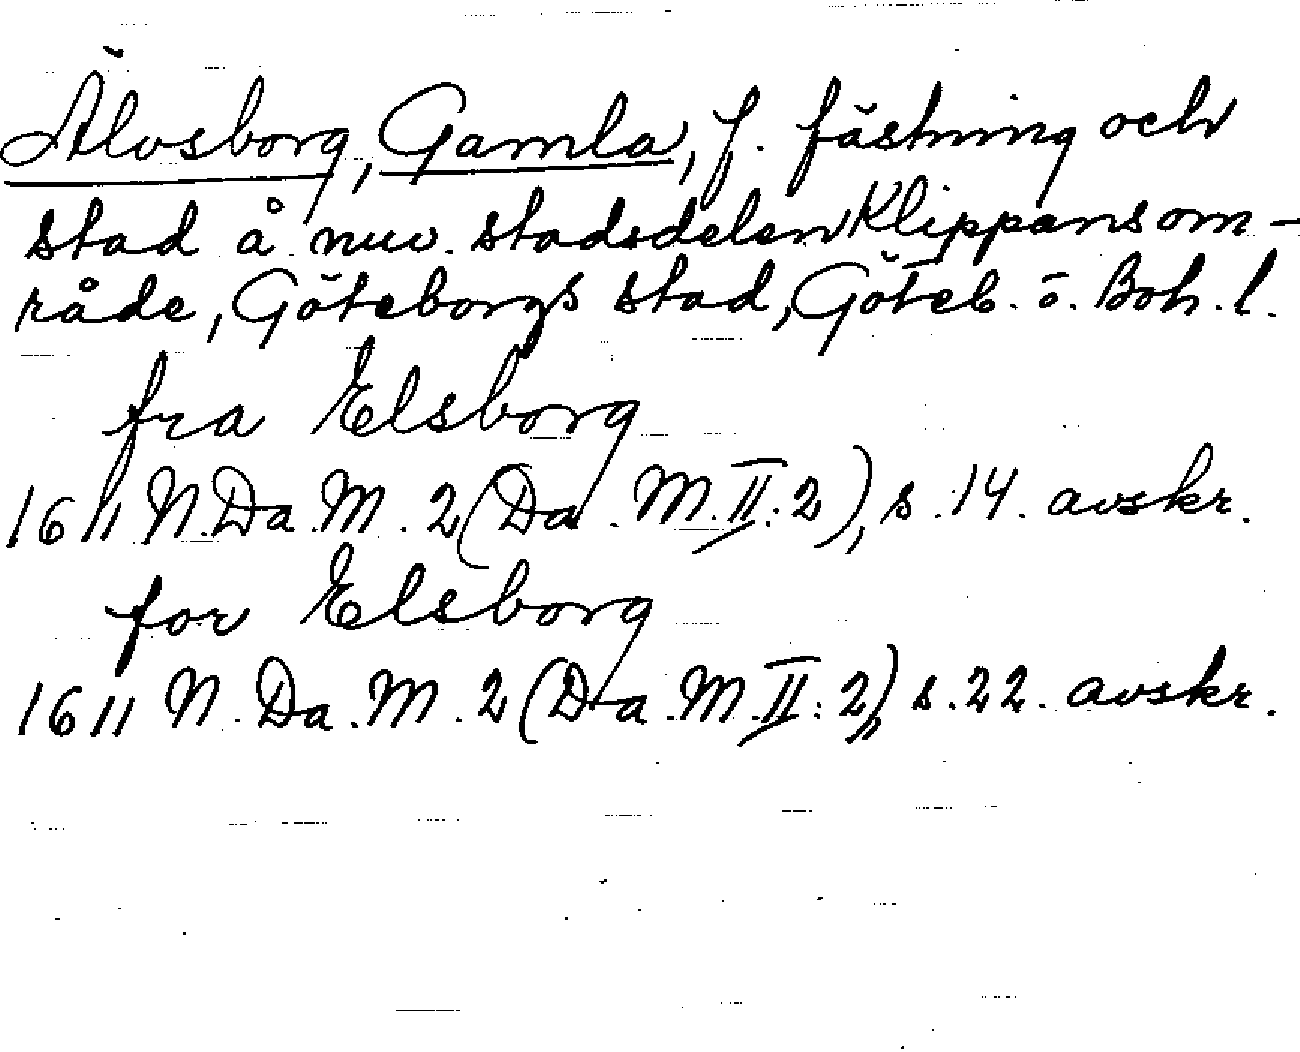 Älvsborg, Gamla, f. fästning och
stad å nuv. stadsdelen Klippans om-
råde, Göteborgs stad, Göteb. o. Boh. l.
fra Elsborg
1611 N. Da. M. 2 (Da. M. II: 2), s. 14. avskr.
for Elsborg
1611 N. Da. M. 2 (Da. M. II: 2), s. 22. avskr.